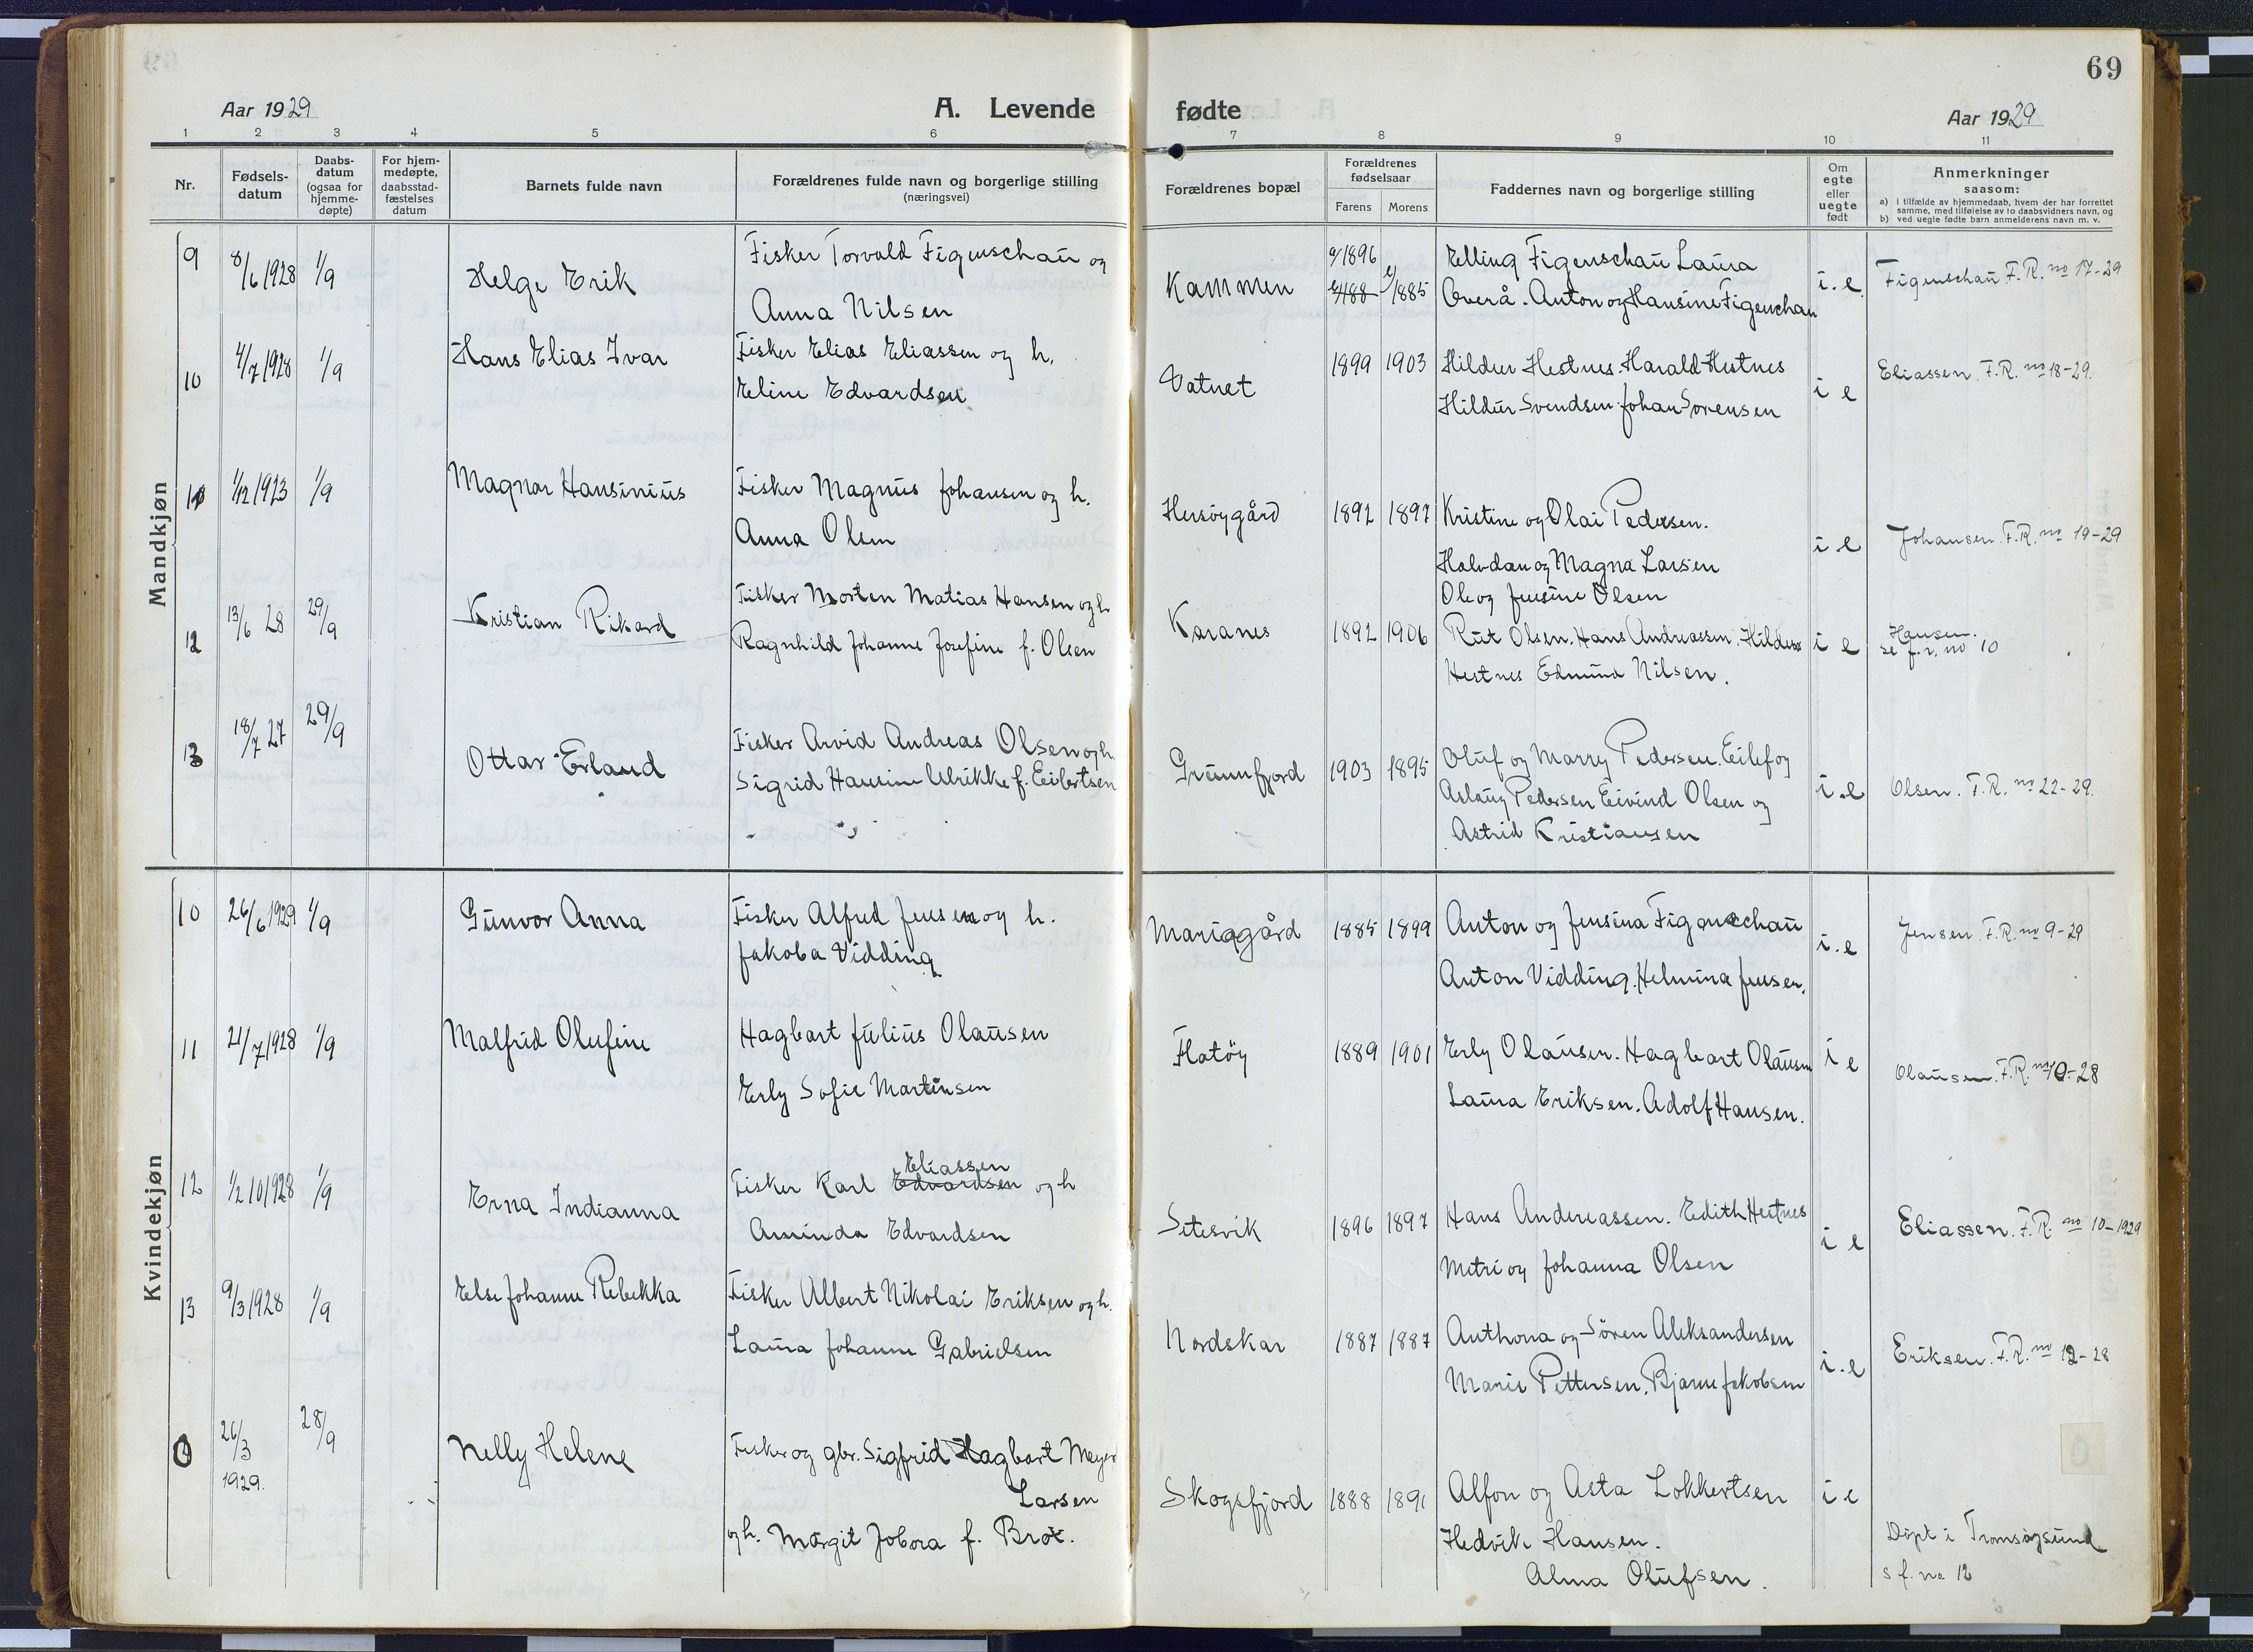 69
Aar 1929 A. Levende fødte Aar 1929
1 2 3 4 5 6 7 8 9 10 11
Nr. Fødselsdatum Daabsdatum (ogsaa for hjemmedøpte) For hjemmedøpte, daabsstadfæstelses datum Barnets fulde navn Forældrenes fulde navn og borgerlige stilling (næringsvei) Forældrenes bopæl Forældrenes fødselsaar Farens Morens Faddernes navn og borgerlige stilling Om egte eller uegte født Anmerkninger saasom:
a) i tilfælde av hjemmedaab, hvem der har forrettet samme, med tilføielse av to daabsvidners navn, og
b) ved uegte fødte barn anmelderens navn m. v.
Mandkjøn
9 8/6 1928 1/9 Helge Erik Fisker Torvald Figenschau og Kammen 1896 1885 Elling Figenschau Laura i.e. Figenschau F.R. no 17-29
Anna Nilsen Overå. Anton og Hansine Figenschau
10 4/7 1928 1/9 Hans Elias Ivar Fisker Elias Eliassen og h. Vatnet 1899 1903 Hildur Hestnes. Harald Hestnes i e Eliassen. F.R. no 18-29.
Eline Edvardsen Hildur Svendsen. Johan Sørensen
11 1/12 1923 1/9 Magnar Hansinius Fisker Magnus Johansen og h. Hersøygård 1892 1897 Kristine og Olai Pedersen. i.e Johansen. F.R. no 19-29
Anna Olsen Halvdan og Magna Larsen
Ole og Jensine Olsen
12 13/6 28 29/9 Kristian Rikard Fisker Morten Matias Hansen og h Karanes 1892 1906 Rut Olsen. Hans Andreassen. Hildur i e Hansen.
Ragnhild Johanne Josefine f. Olsen Hestnes Edmund Nilsen. se f.r. no 10
13 18/7 27 29/9 Ottar Erland Fisker Arvid Andreas Olsen og h. Grunnfjord 1903 1895 Oluf og Marry Pedersen. Eilef og i.e Olsen. F.R. no 22-29.
Sigrid Hansine Ulrikke f. Eibertsen Aslaug Pedersen Eivind Olsen og
Astrid Kristiansen
Kvindekjøn
10 26/6 1929 1/9 Gunvor Anna Fisker Alfred Jensen og h. Mariagård 1885 1899 Anton og Jensina Figenschau i.e Jensen. F.R. no 9-29
Jakoba Vidding Anton Vidding. Helmina Jensen.
11 21/7 1928 1/9 Malfrid Olufine Hagbart Julius Olausen Flatøy 1889 1901 Erly Olausen. Hagbart Olausen i e Olausen. F.R. no 10-28
Erly Sofie Martinsen Laura Eriksen. Adolf Hansen.
12 1/2 10 1928 1/9 Erna Indianna Fisker Karl Edvardsen Eliassen og h Setesvik 1896 1897 Hans Andreassen. Edith Hestnes i e Eliassen. F.R. no 10-1929
Aminda Edvardsen Metri og Johanna Olsen
13 9/3 1928 1/9 Else Johanne Rebekka Fisker Albert Nikolai Eriksen og h. Nordskar 1887 1887 Anthona og Søren Aleksandersen i.e Eriksen. F.R. no 12-28
Laura Johanne Gabrielsen Marie Pettersen. Bjarne Jakobsen
0 26/3 1929. 28/9 Nelly Helene Fisker og gbr. Sigfrid Hagbart Meyer Larsen Skogsfjord 1888 1891 Alfon og Asta Lokkertsen i e Døpt i Tromsøysund
og h. Margit Jobora f. Brox. Hedvik Hansen. s f. no 12
Alma Olufsen.